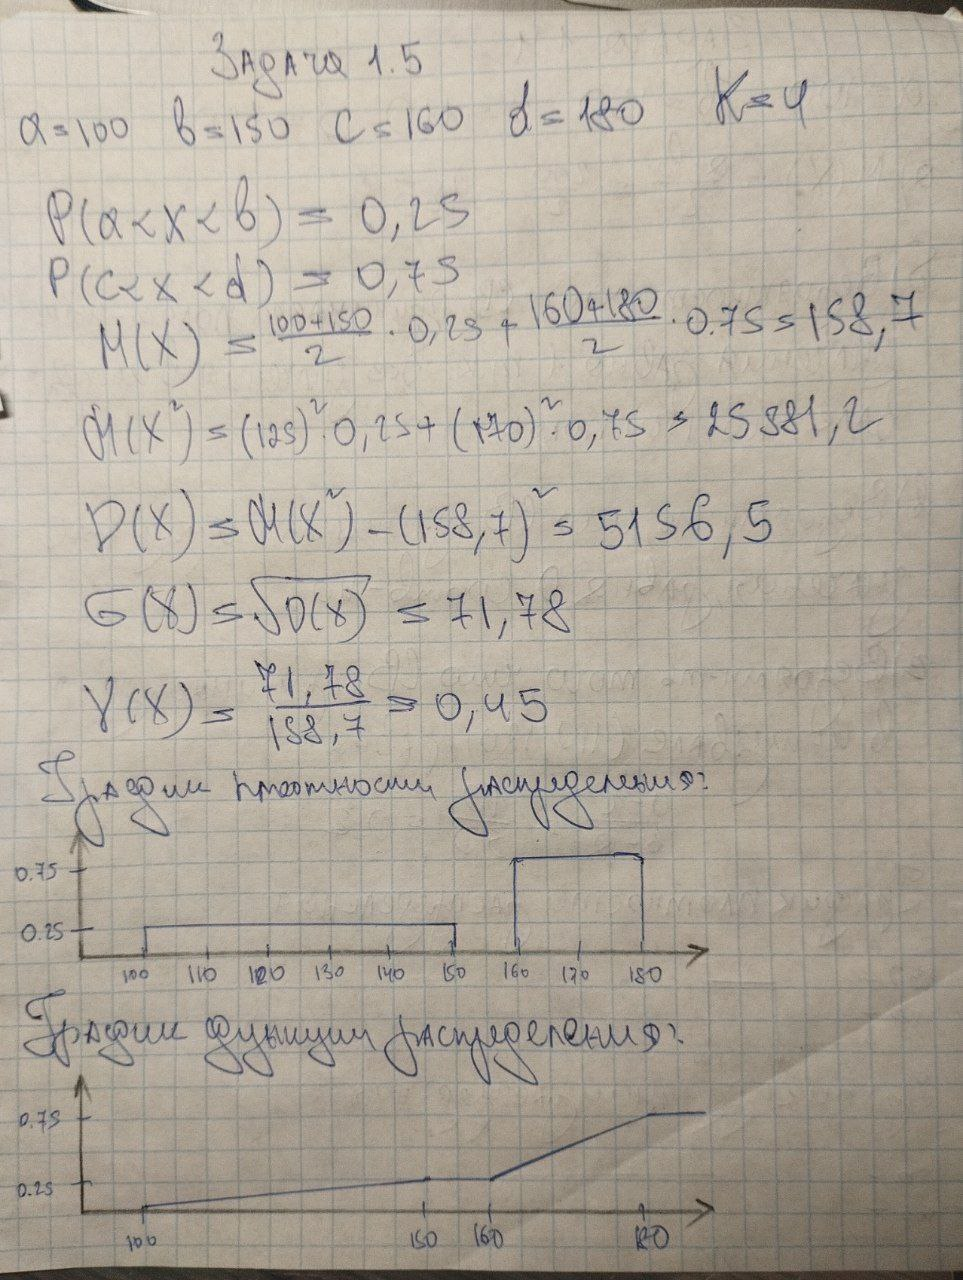 Задача 1.5
a=100 b=150 c=160 d=180 K=4
P(a<x<b) = 0,25
P(c<x<d) = 0,75
M(X) = \frac{100+150}{2} · 0,25 + \frac{160+180}{2} · 0.75 = 158,7
M(X²) = (125)² · 0,25 + (170)² · 0,75 = 25581,2
D(X) = M(X²) - (158,7)² = 5156,5
σ(X) = √D(X) = 71,78
V(X) = \frac{71,78}{158,7} = 0,45
График плотности распределения:
0.75
0.25
100 110 120 130 140 150 160 170 180
График функции распределения:
0.75
0.25
100 150 160 180